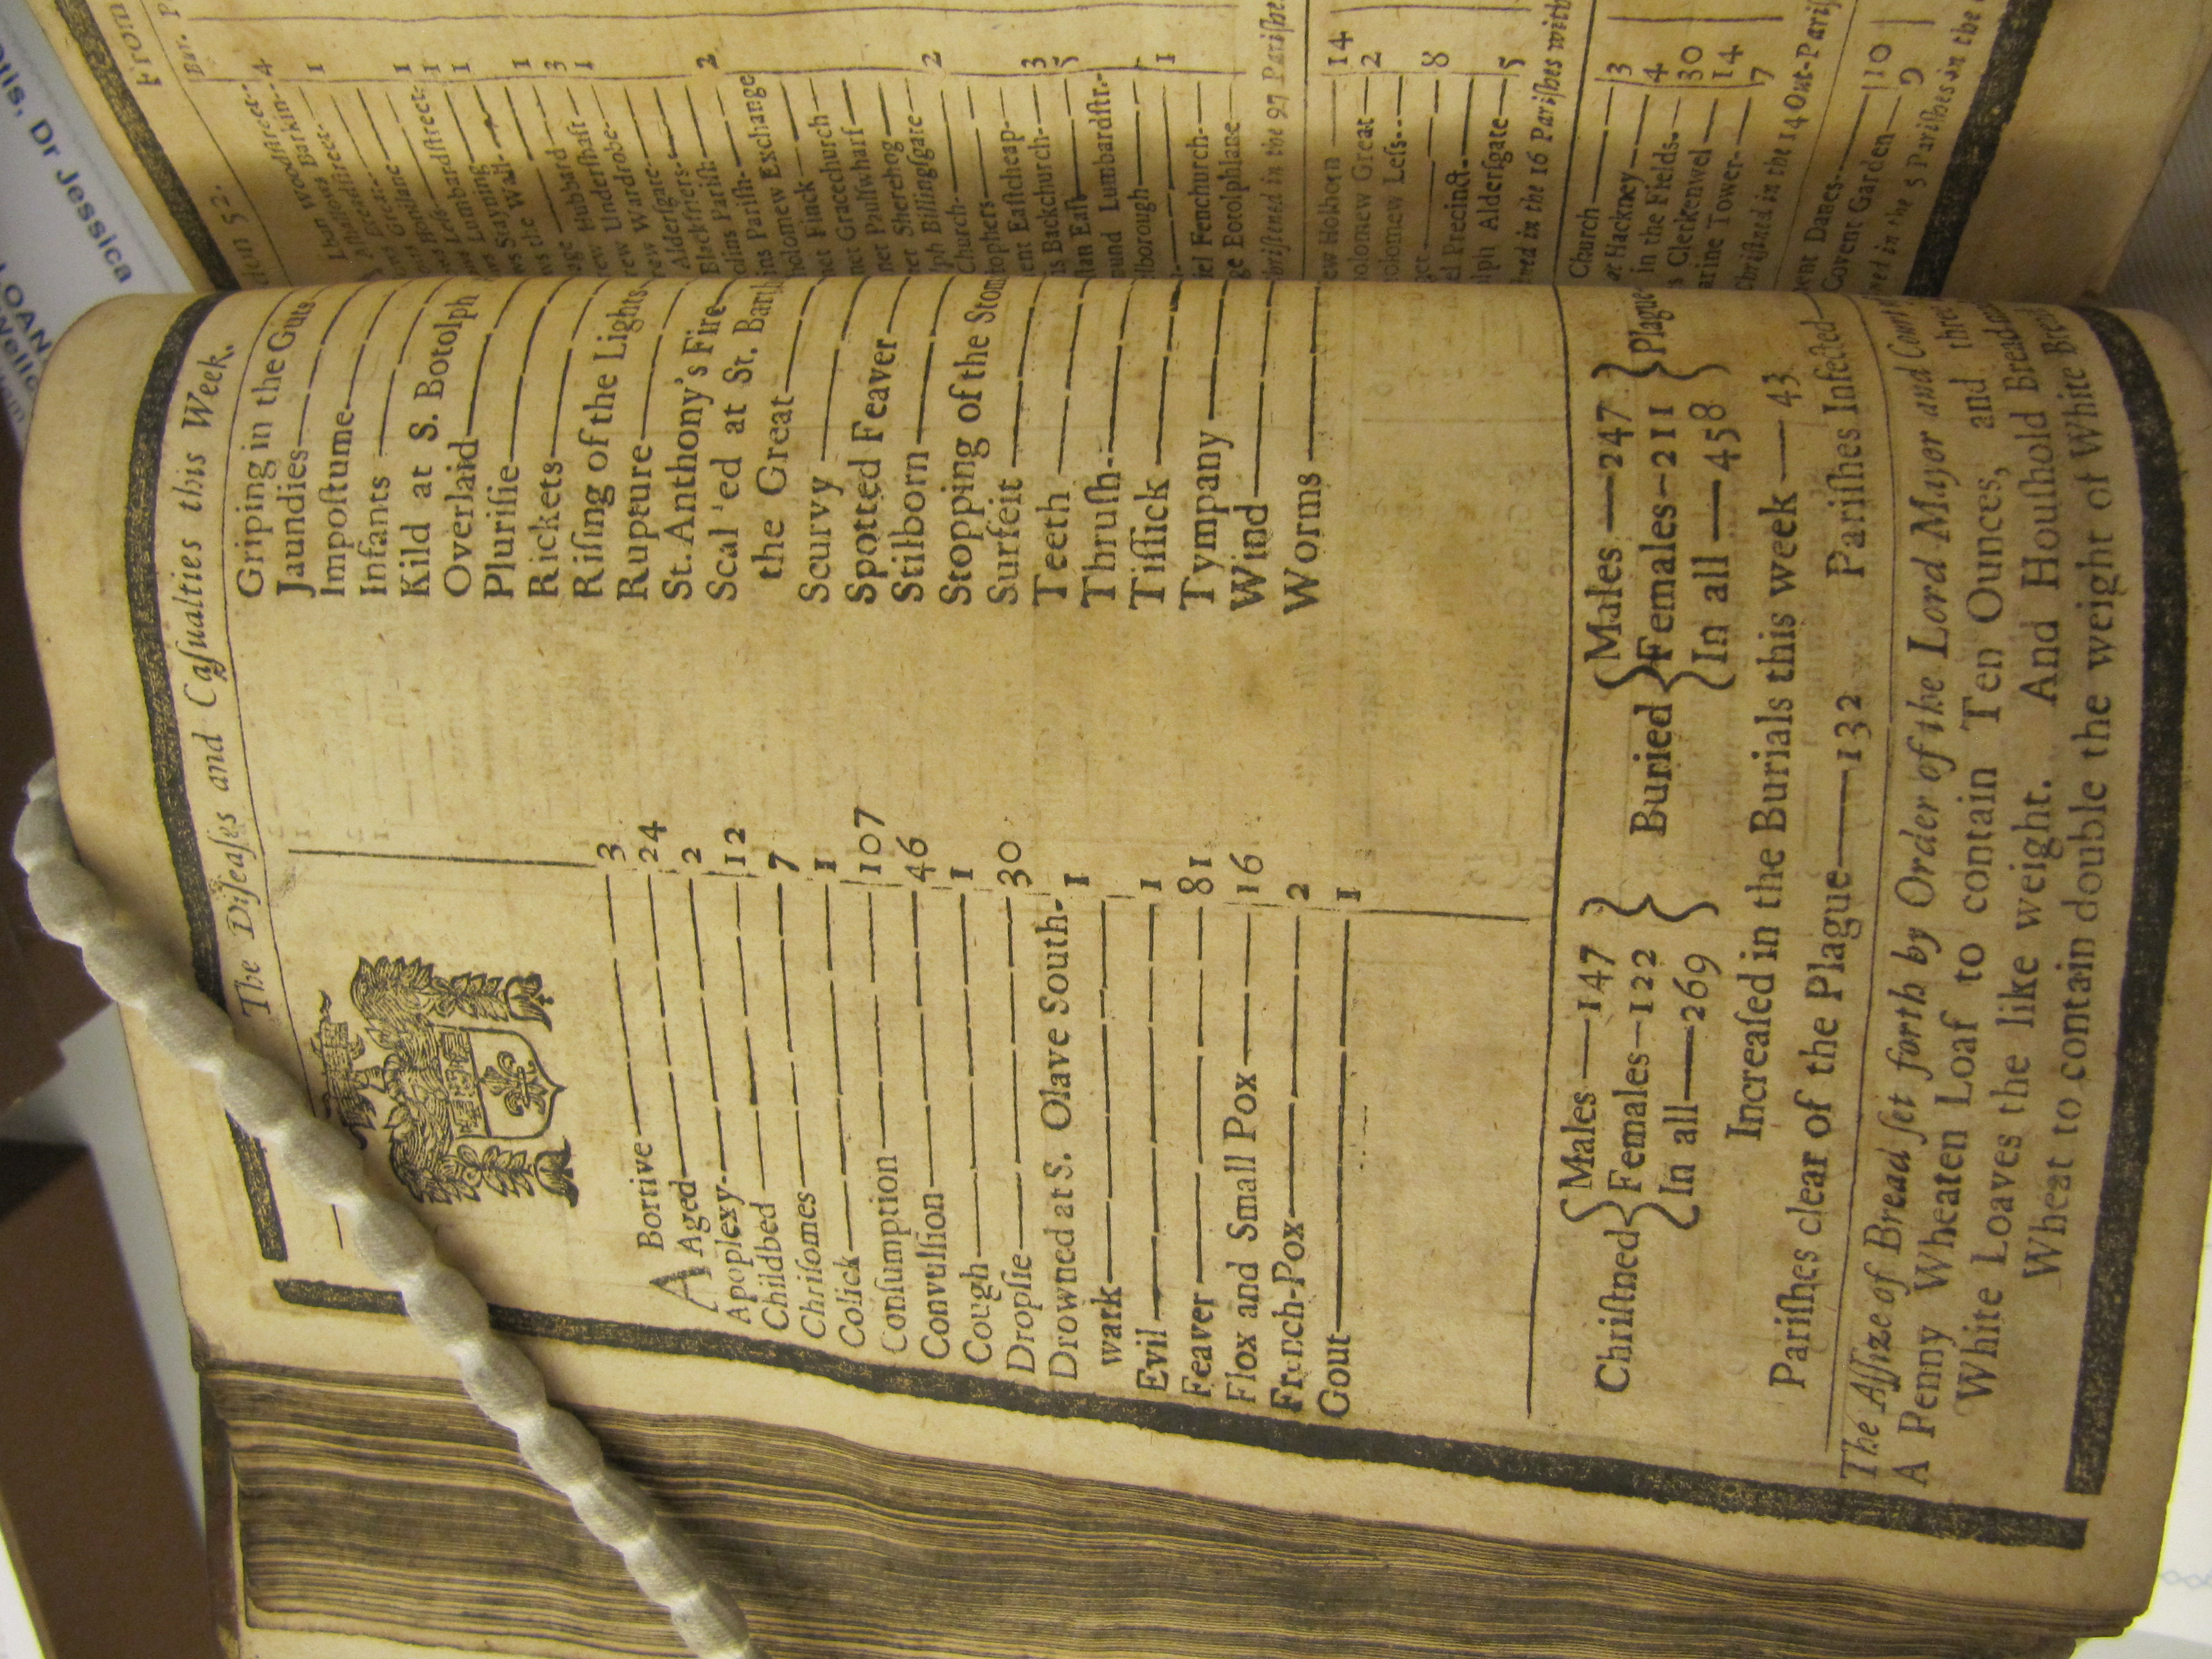 The Diſeaſes and Caſualties this Week.
A Bortive 3
Aged 24
Apoplexy 2
Childbed 12
Chriſomes 7
Colick 1
Conſumption 107
Convulſion 46
Cough 1
Dropſie 30
Drowned at S. Olave South- 1
wark
Evil 1
Feaver 81
Flox and Small Pox 16
French-Pox 2
Gout 1
Griping in the Guts
Jaundies
Impoſtume
Infants
Kild at S. Botolph
Overlaid
Pluriſie
Rickets
Riſing of the Lights
Rupture
St. Anthony's Fire
Scal'ed at St. Barth
the Great
Scurvy
Spotted Feaver
Stilborn
Stopping of the Stom
Surfeit
Teeth
Thruſh
Tiſſick
Tympany
Wind
Worms
Chriſtned { Males 147
Females 122
In all 269 }
Buried { Males 247
Females 211
In all 458 } Plague
Increaſed in the Burials this week 43
Pariſhes clear of the Plague 132 Pariſhes Infected
The Aſſize of Bread ſet forth by Order of the Lord Mayor and Court
A Penny Wheaten Loaf to contain Ten Ounces, and three
White Loaves the like weight. And Houſhold Bread
Wheat to contain double the weight of White Bread
From
Bur. P
52.
Woodſtreet 4
Barkin
1
Honilane 1
Lumbardſtreet 1
1
Stayning
the Wall 1
Hubbard 3
Underſhaft 1
Wardrobe
Alderſgate
Blackfriers
Pariſh 2
Pariſh
Exchange
Finck
Gracechurch
Paulſwharf
Sherehog
Billingſgate 2
Church
Eaſtcheap 3
Backchurch 5
Eaſt
Lumbardſtr.
1
Fenchurch 1
Botolphlane
in the 97 Pariſhe
Holborn 14
Great 2
Leſs
8
Precinct
Alderſgate 5
in the 16 Pariſhes with
Church 3
at Hackney 4
in the Fields 30
Clerkenwel 14
Tower 7
in the 14 Out-Pariſ
Danes 10
Covent Garden 9
in the 5 Pariſhes in the
Dr Jessica
LOAN